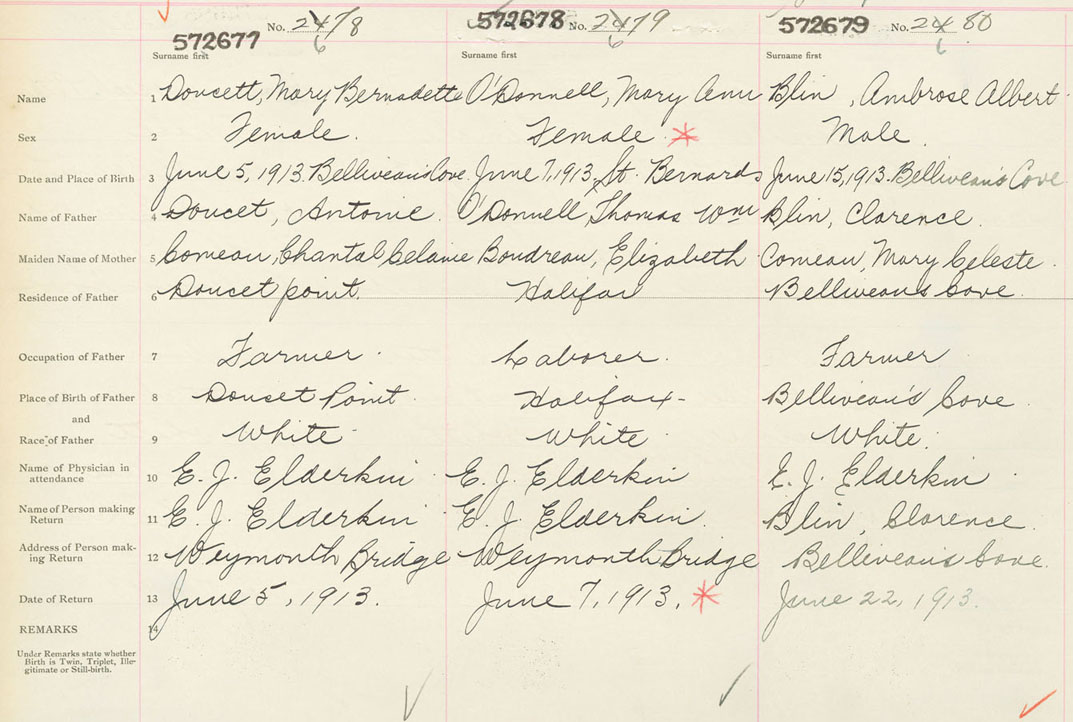 572677 No. 2478 572678 No. 2479 572679 No. 2480
6 6 6
Surname first Surname first Surname first
Name 1 Doucett, Mary Bernadette O'Donnell, Mary Ann Blin, Ambrose Albert
Sex 2 Female. Female. * Male
Date and Place of Birth 3 June 5, 1913. Belliveau's Cove June 7, 1913, St. Bernards June 15, 1913. Belliveau's Cove
Name of Father 4 Doucet, Antonie. O'Donnell, Thomas Wm Blin, Clarence.
Maiden Name of Mother 5 Comeau, Chantal Celanie Boudreau, Elizabeth Comeau, Mary Celeste.
Residence of Father 6 Doucet point. Halifax Belliveau's Cove.
Occupation of Father 7 Farmer. Laborer. Farmer
Place of Birth of Father 8 Doucet Point. Halifax- Belliveau's Cove
and
Race of Father 9 White White White.
Name of Physician in
attendance 10 E. J. Elderkin E. J. Elderkin E. J. Elderkin
Name of Person making
Return 11 E. J. Elderkin E. J. Elderkin. Blin, Clarence.
Address of Person mak-
ing Return 12 Weymouth Bridge Weymouth Bridge Belliveau's Cove.
Date of Return 13 June 5, 1913. June 7, 1913. * June 22, 1913.
REMARKS 14
Under Remarks state whether
Birth is Twin, Triplet, Ille-
gitimate or Still-birth.